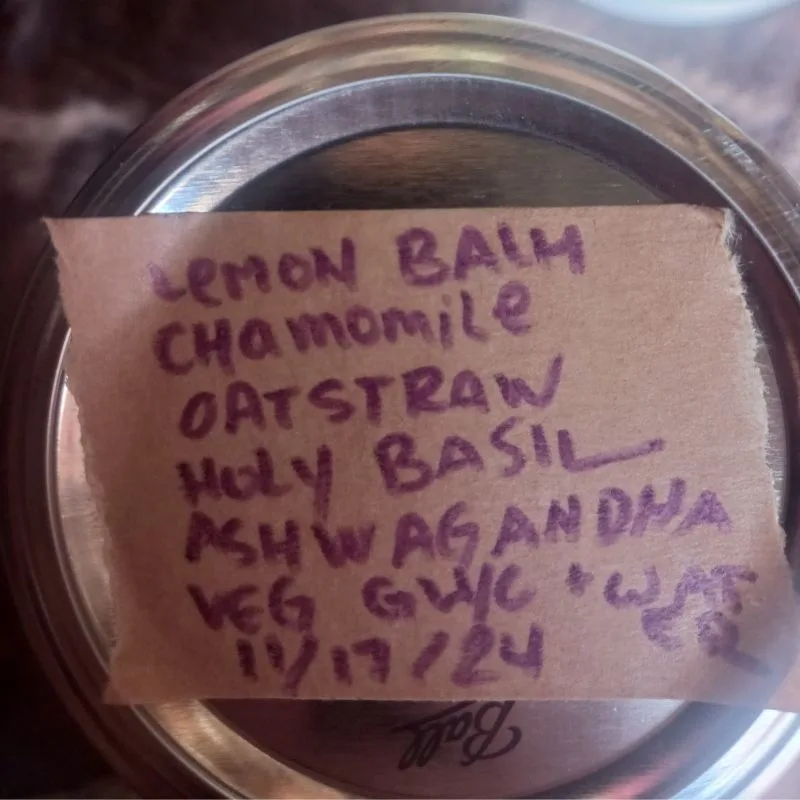 LEMON BALM
CHAMOMILE
OATSTRAW
HOLY BASIL
ASHWAGANDHA
VEG GLY/C + WAT
ER
11/17/24
Ball